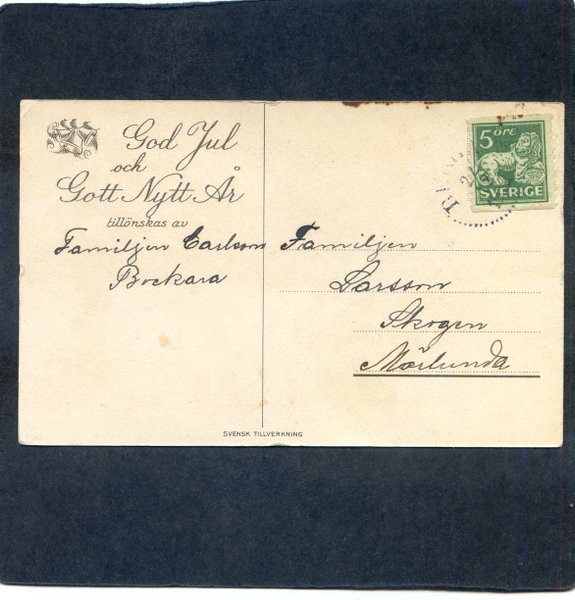 God Jul
och
Gott Nytt År
tillönskas av
Familjen Carlson
Bockara
Familjen
Larsson
Skogen
Mörlunda
5 öre
SVERIGE
SVENSK TILLVERKNING